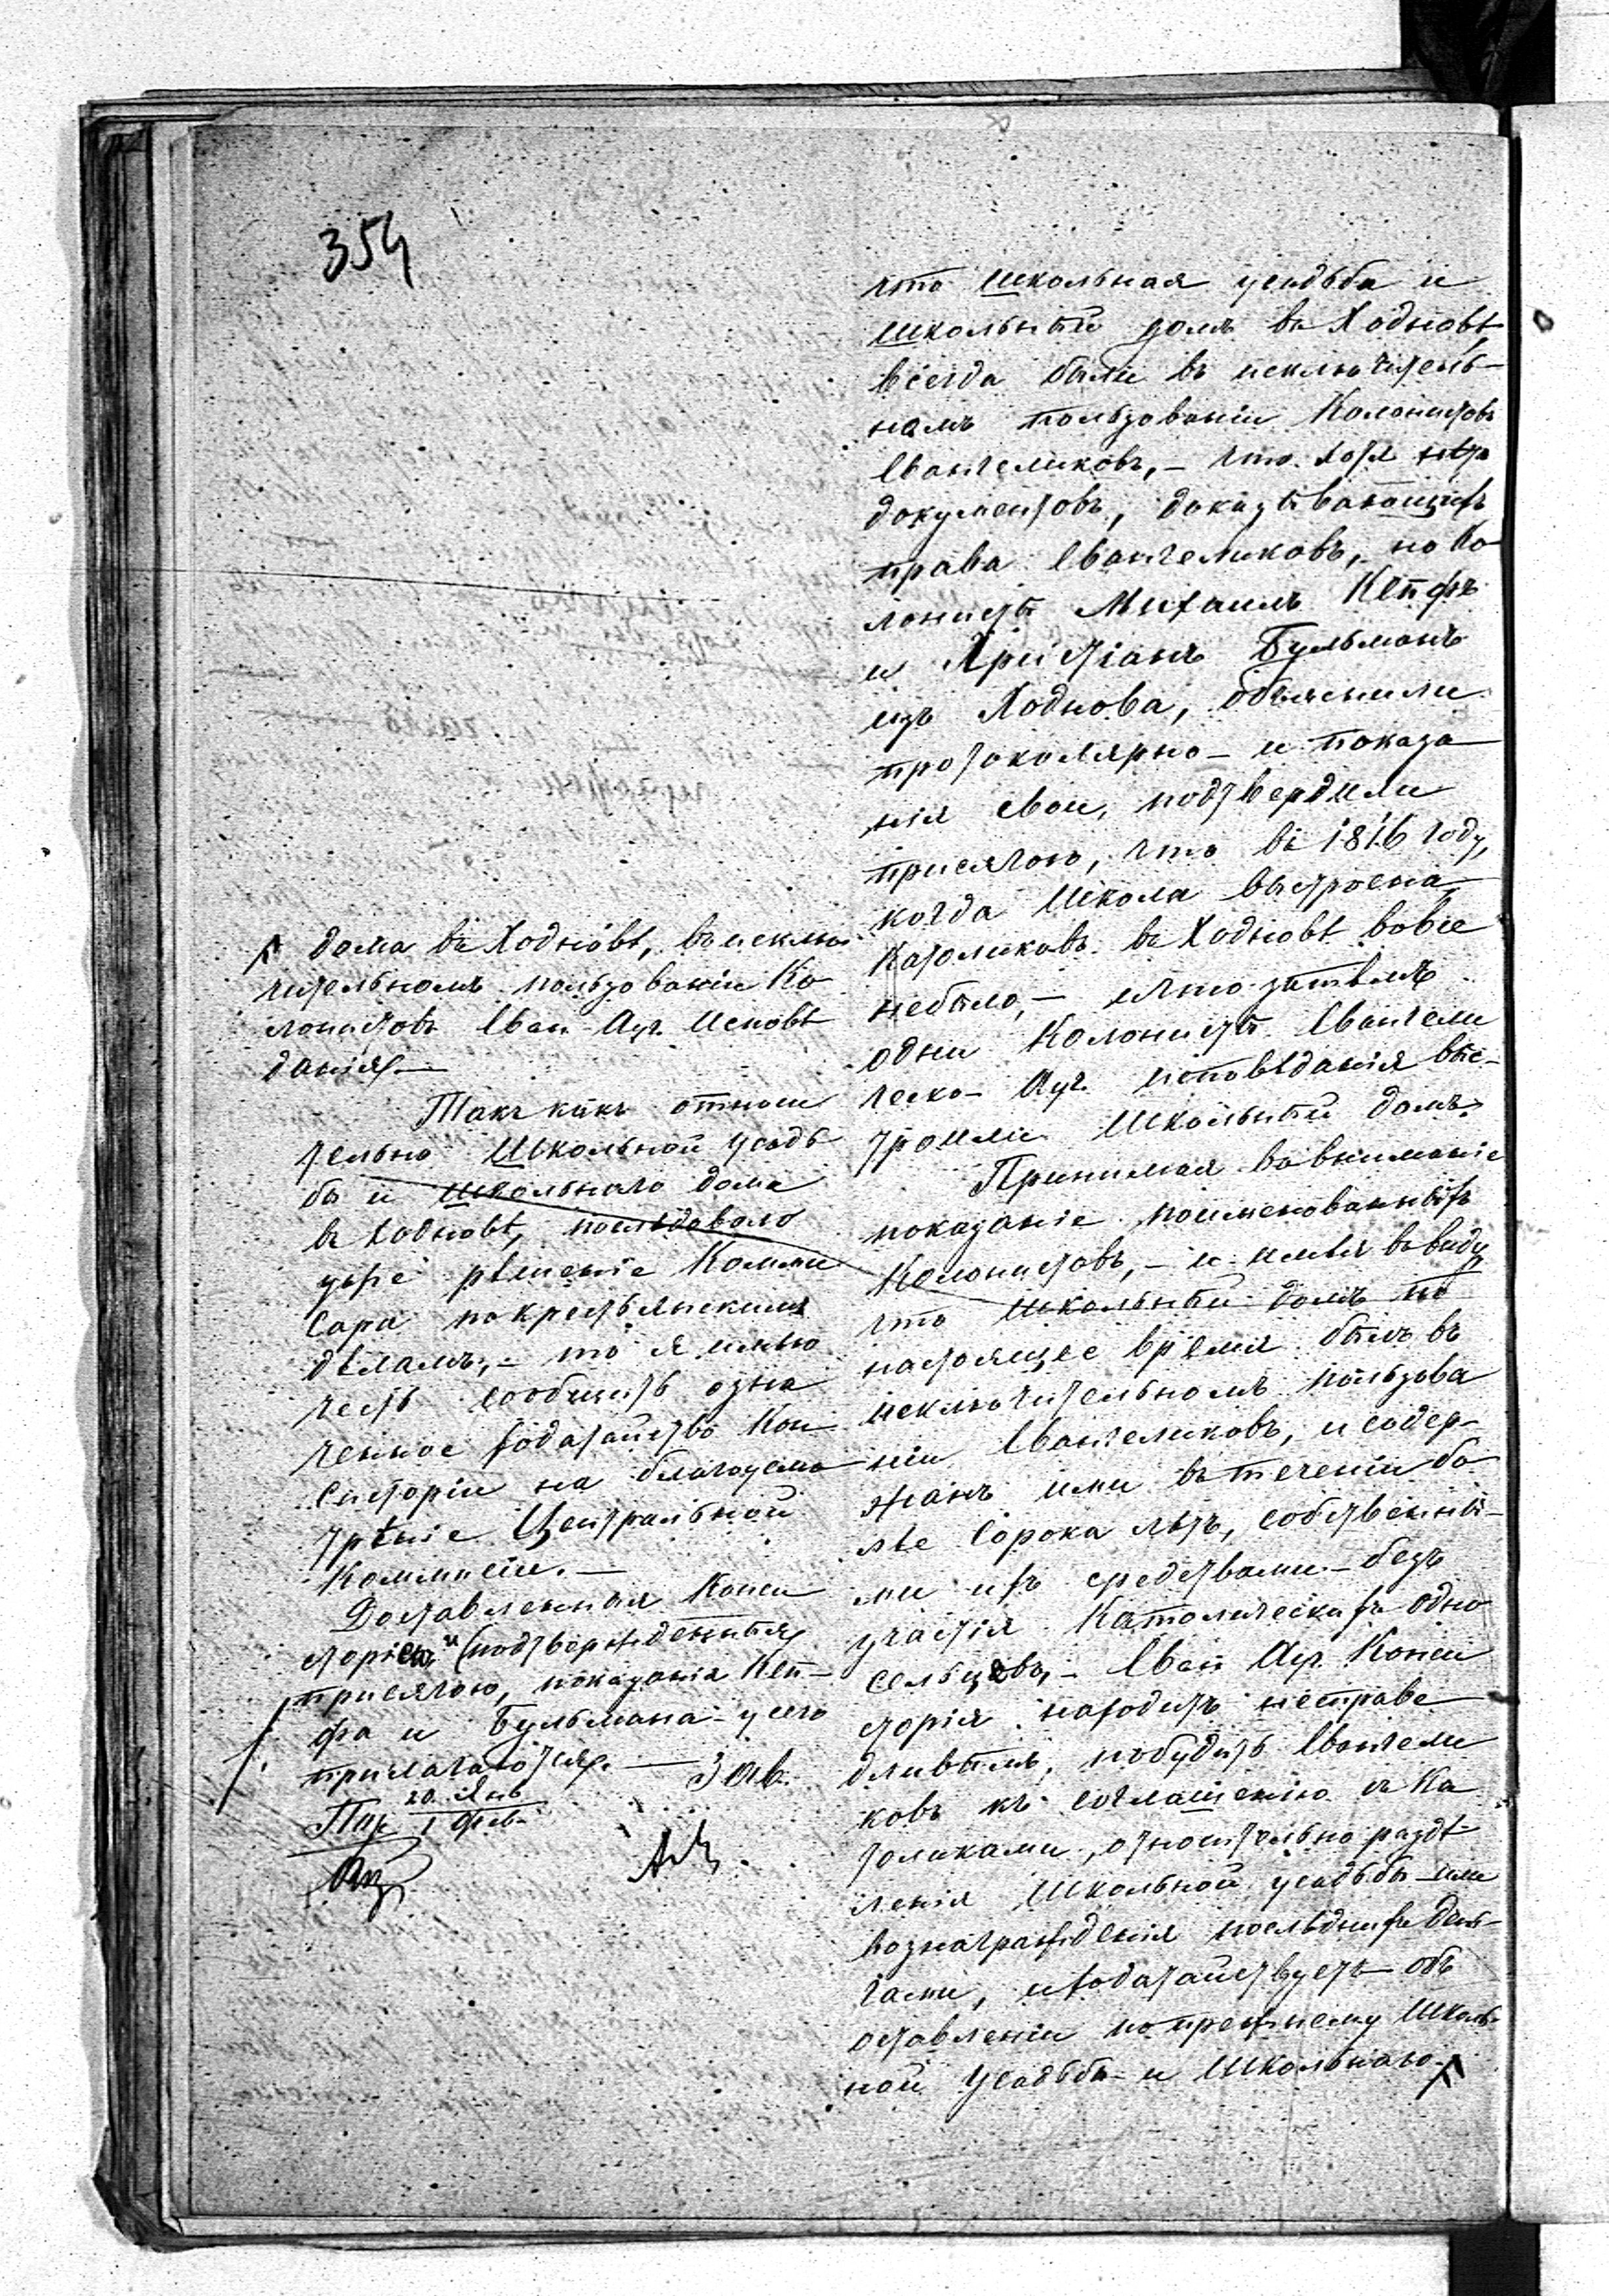 354
что школьная усадьба и
школьный домъ въ Ходновѣ,
всегда были въ исключитель-
номъ пользованіи Колонистовъ
Евангеликовъ, – что хотя нѣтъ
документовъ, доказывающихъ
права Евангеликовъ, – но Ко-
лонисты Михаилъ Кепфъ
и Христіанъ Бульманъ
изъ Ходнова, объяснили
протоколярно – и показа
нія свои, подтвердили
присягою, что въ 1816 году,
когда школа выстроена,
Католиковъ въ Ходновѣ вовсе
небыло, – и что затѣмъ
одни Колонисты Евангели
ческо-Ауг. исповѣданія выс-
троили школьный домъ.
Принимая во вниманіе
показаніе поименованныхъ
Колонистовъ, – и имѣя въ виду
что школьный домъ по
настоящее время былъ въ
исключительномъ пользова
ніи Евангеликовъ, и содер-
жанъ ими въ теченіи бо
лѣе сорока лѣтъ, собственны-
ми ихъ средствами – безъ
участія Католическихъ одно
сельцовъ, – Еван Ауг. Конси
сторія находитъ несправе
дливымъ, побудить Евангели
ковъ къ соглашенію съ Ка
толиками, относительно раздѣ-
ленія школьной усадьбы – или
вознагражденія послѣднихъ день-
гами, и ходатайствуетъ – объ
оставленіи по прежнему школь-
ной усадьбы – и школьнаго
дома въ Ходновѣ, въ исклю
чительномъ пользованіи Ко
лонистовъ Еван-Ауг. Исповѣ
данія. –
Такъ какъ относи
тельно школьной усадь
бы и школьнаго дома
въ Ходновѣ, послѣдовало
уже рѣшеніе Комми
сара по крестьянскимъ
дѣламъ, – то я имѣю
честь сообщить озна
ченное ходатайство Кон
систоріи на благоусмо
трѣніе Центральной
Коммисіи. –
Доставленная Конси
сторіею и (подтвержденныя
присягою, показанія Кеп-
фа и Бульмана – у сего
прилагаются. –
20 Янв
1 Фев.